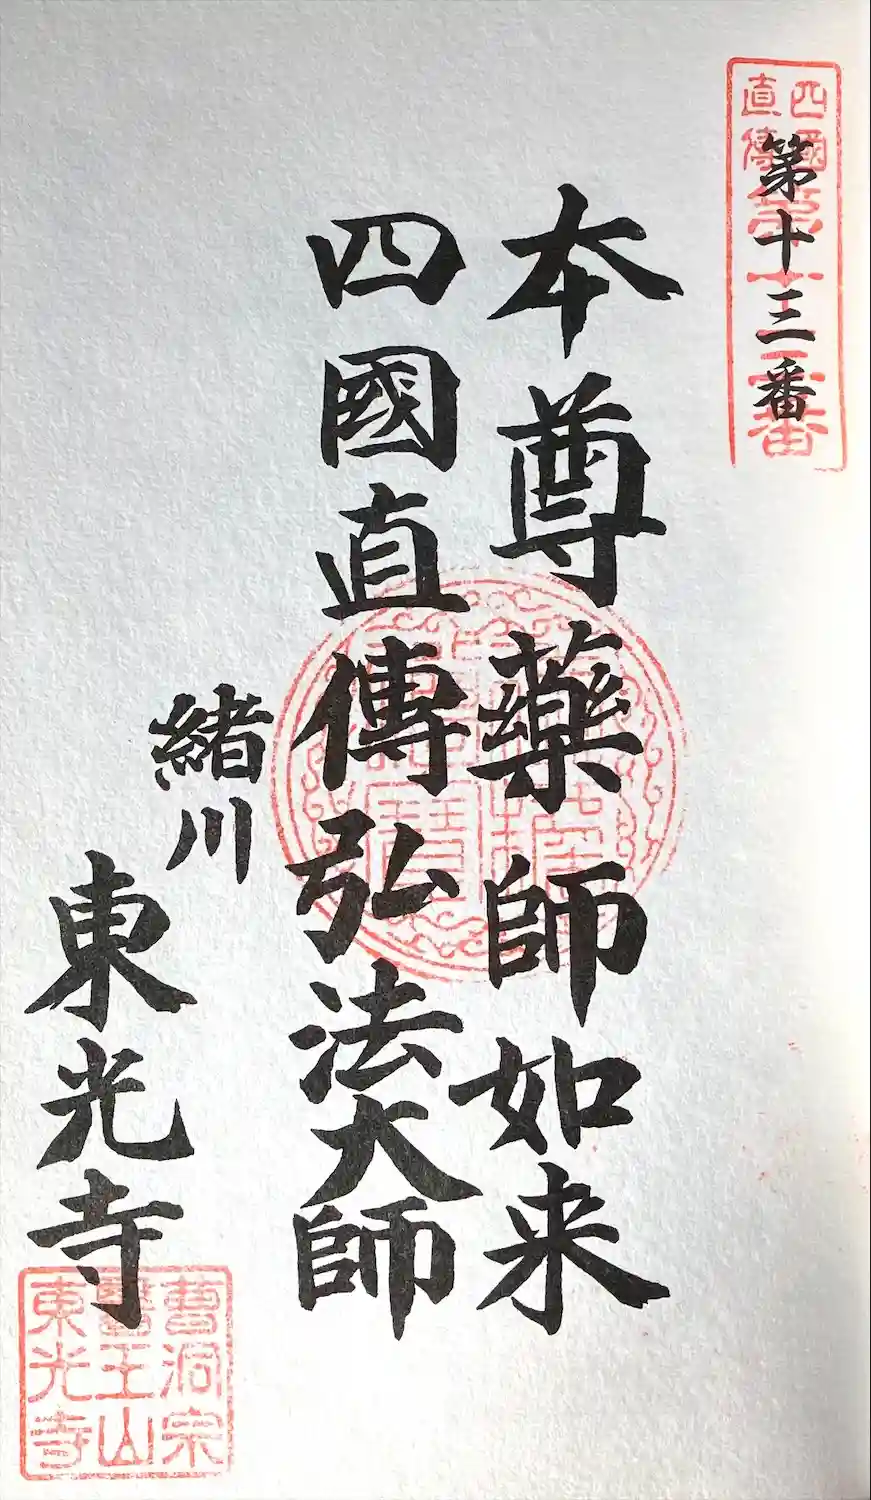 四國
直傳
第十三番
第十三番
本尊薬師如来
四國直傳弘法大師
緒川
東光寺
曹洞宗
醫王山
東光寺